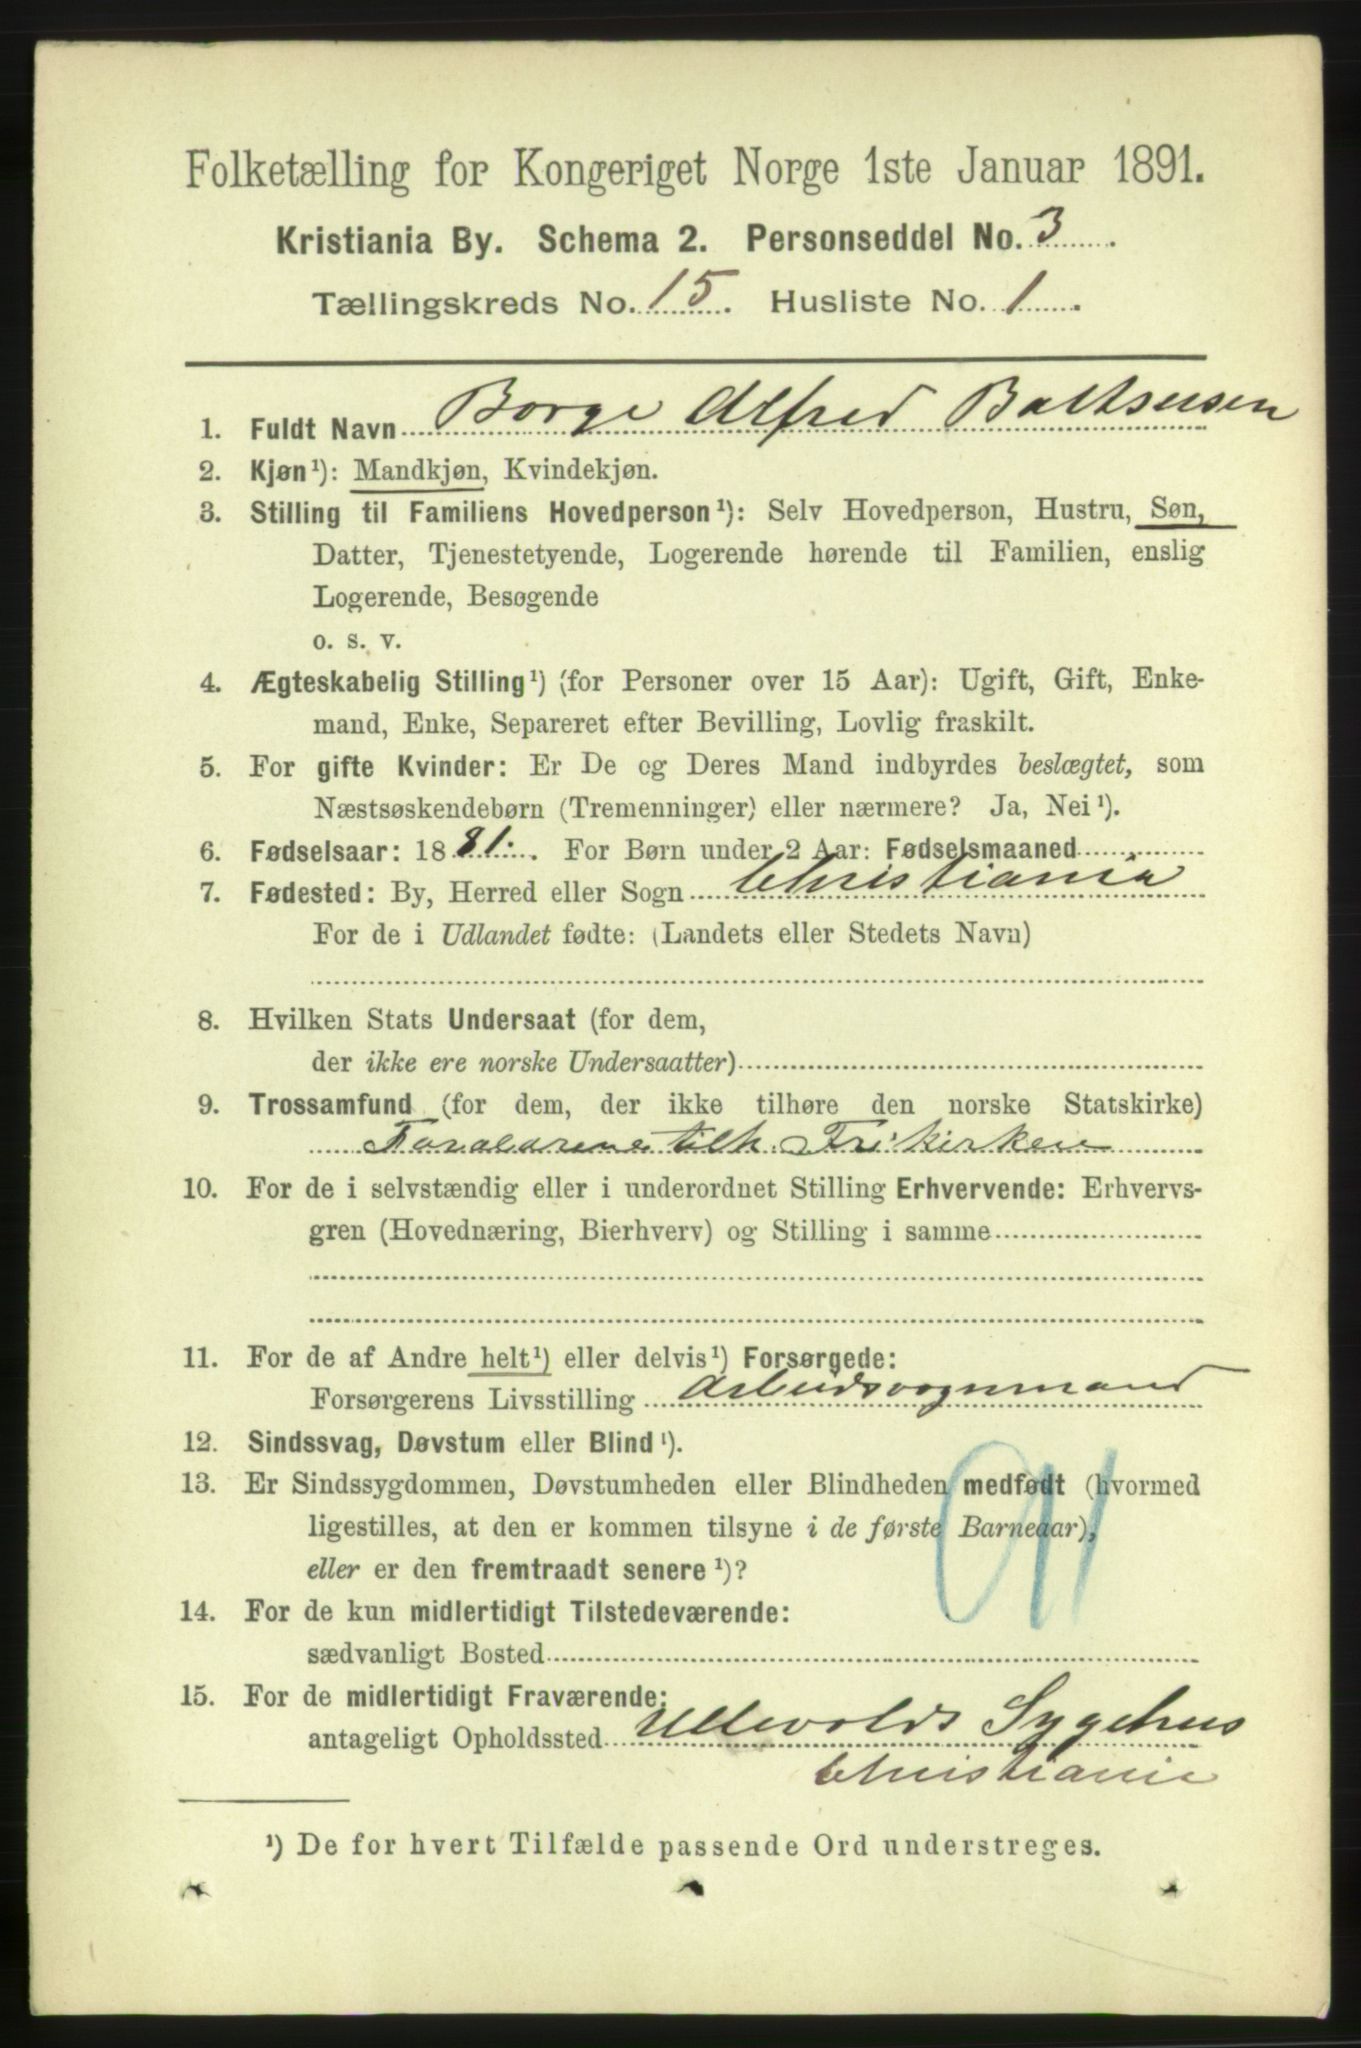 Folketælling for Kongeriget Norge 1ste Januar 1891.
Kristiania By. Schema 2. Personseddel No. 3
Tællingskreds No. 15. Husliste No. 1.
1. Fuldt Navn Borge Alfred Baltsersen
2. Kjøn¹): Mandkjøn, Kvindekjøn.
3. Stilling til Familiens Hovedperson¹): Selv Hovedperson, Hustru, Søn,
Datter, Tjenestetyende, Logerende hørende til Familien, enslig
Logerende, Besøgende
o. s. v.
4. Ægteskabelig Stilling¹) (for Personer over 15 Aar): Ugift, Gift, Enke-
mand, Enke, Separeret efter Bevilling, Lovlig fraskilt.
5. For gifte Kvinder: Er De og Deres Mand indbyrdes beslægtet, som
Næstsøskendebørn (Tremenninger) eller nærmere? Ja, Nei¹).
6. Fødselsaar: 1881. For Børn under 2 Aar: Fødselsmaaned
7. Fødested: By, Herred eller Sogn Christiania
For de i Udlandet fødte: (Landets eller Stedets Navn)
8. Hvilken Stats Undersaat (for dem,
der ikke ere norske Undersaatter)
9. Trossamfund (for dem, der ikke tilhøre den norske Statskirke)
Forældrene tilh. Frikirken
10. For de i selvstændig eller i underordnet Stilling Erhvervende: Erhvervs-
gren (Hovednæring, Bierhverv) og Stilling i samme
11. For de af Andre helt¹) eller delvis¹) Forsørgede:
Forsørgerens Livsstilling Arbeidsvognmand
12. Sindssvag, Døvstum eller Blind¹).
13. Er Sindssygdommen, Døvstumheden eller Blindheden medfødt (hvormed
ligestilles, at den er kommen tilsyne i de første Barneaar),
eller er den fremtraadt senere¹)?
14. For de kun midlertidigt Tilstedeværende:
sædvanligt Bosted
15. For de midlertidigt Fraværende:
antageligt Opholdssted Ullevolds Sygehus
Christiania
¹) De for hvert Tilfælde passende Ord understreges.